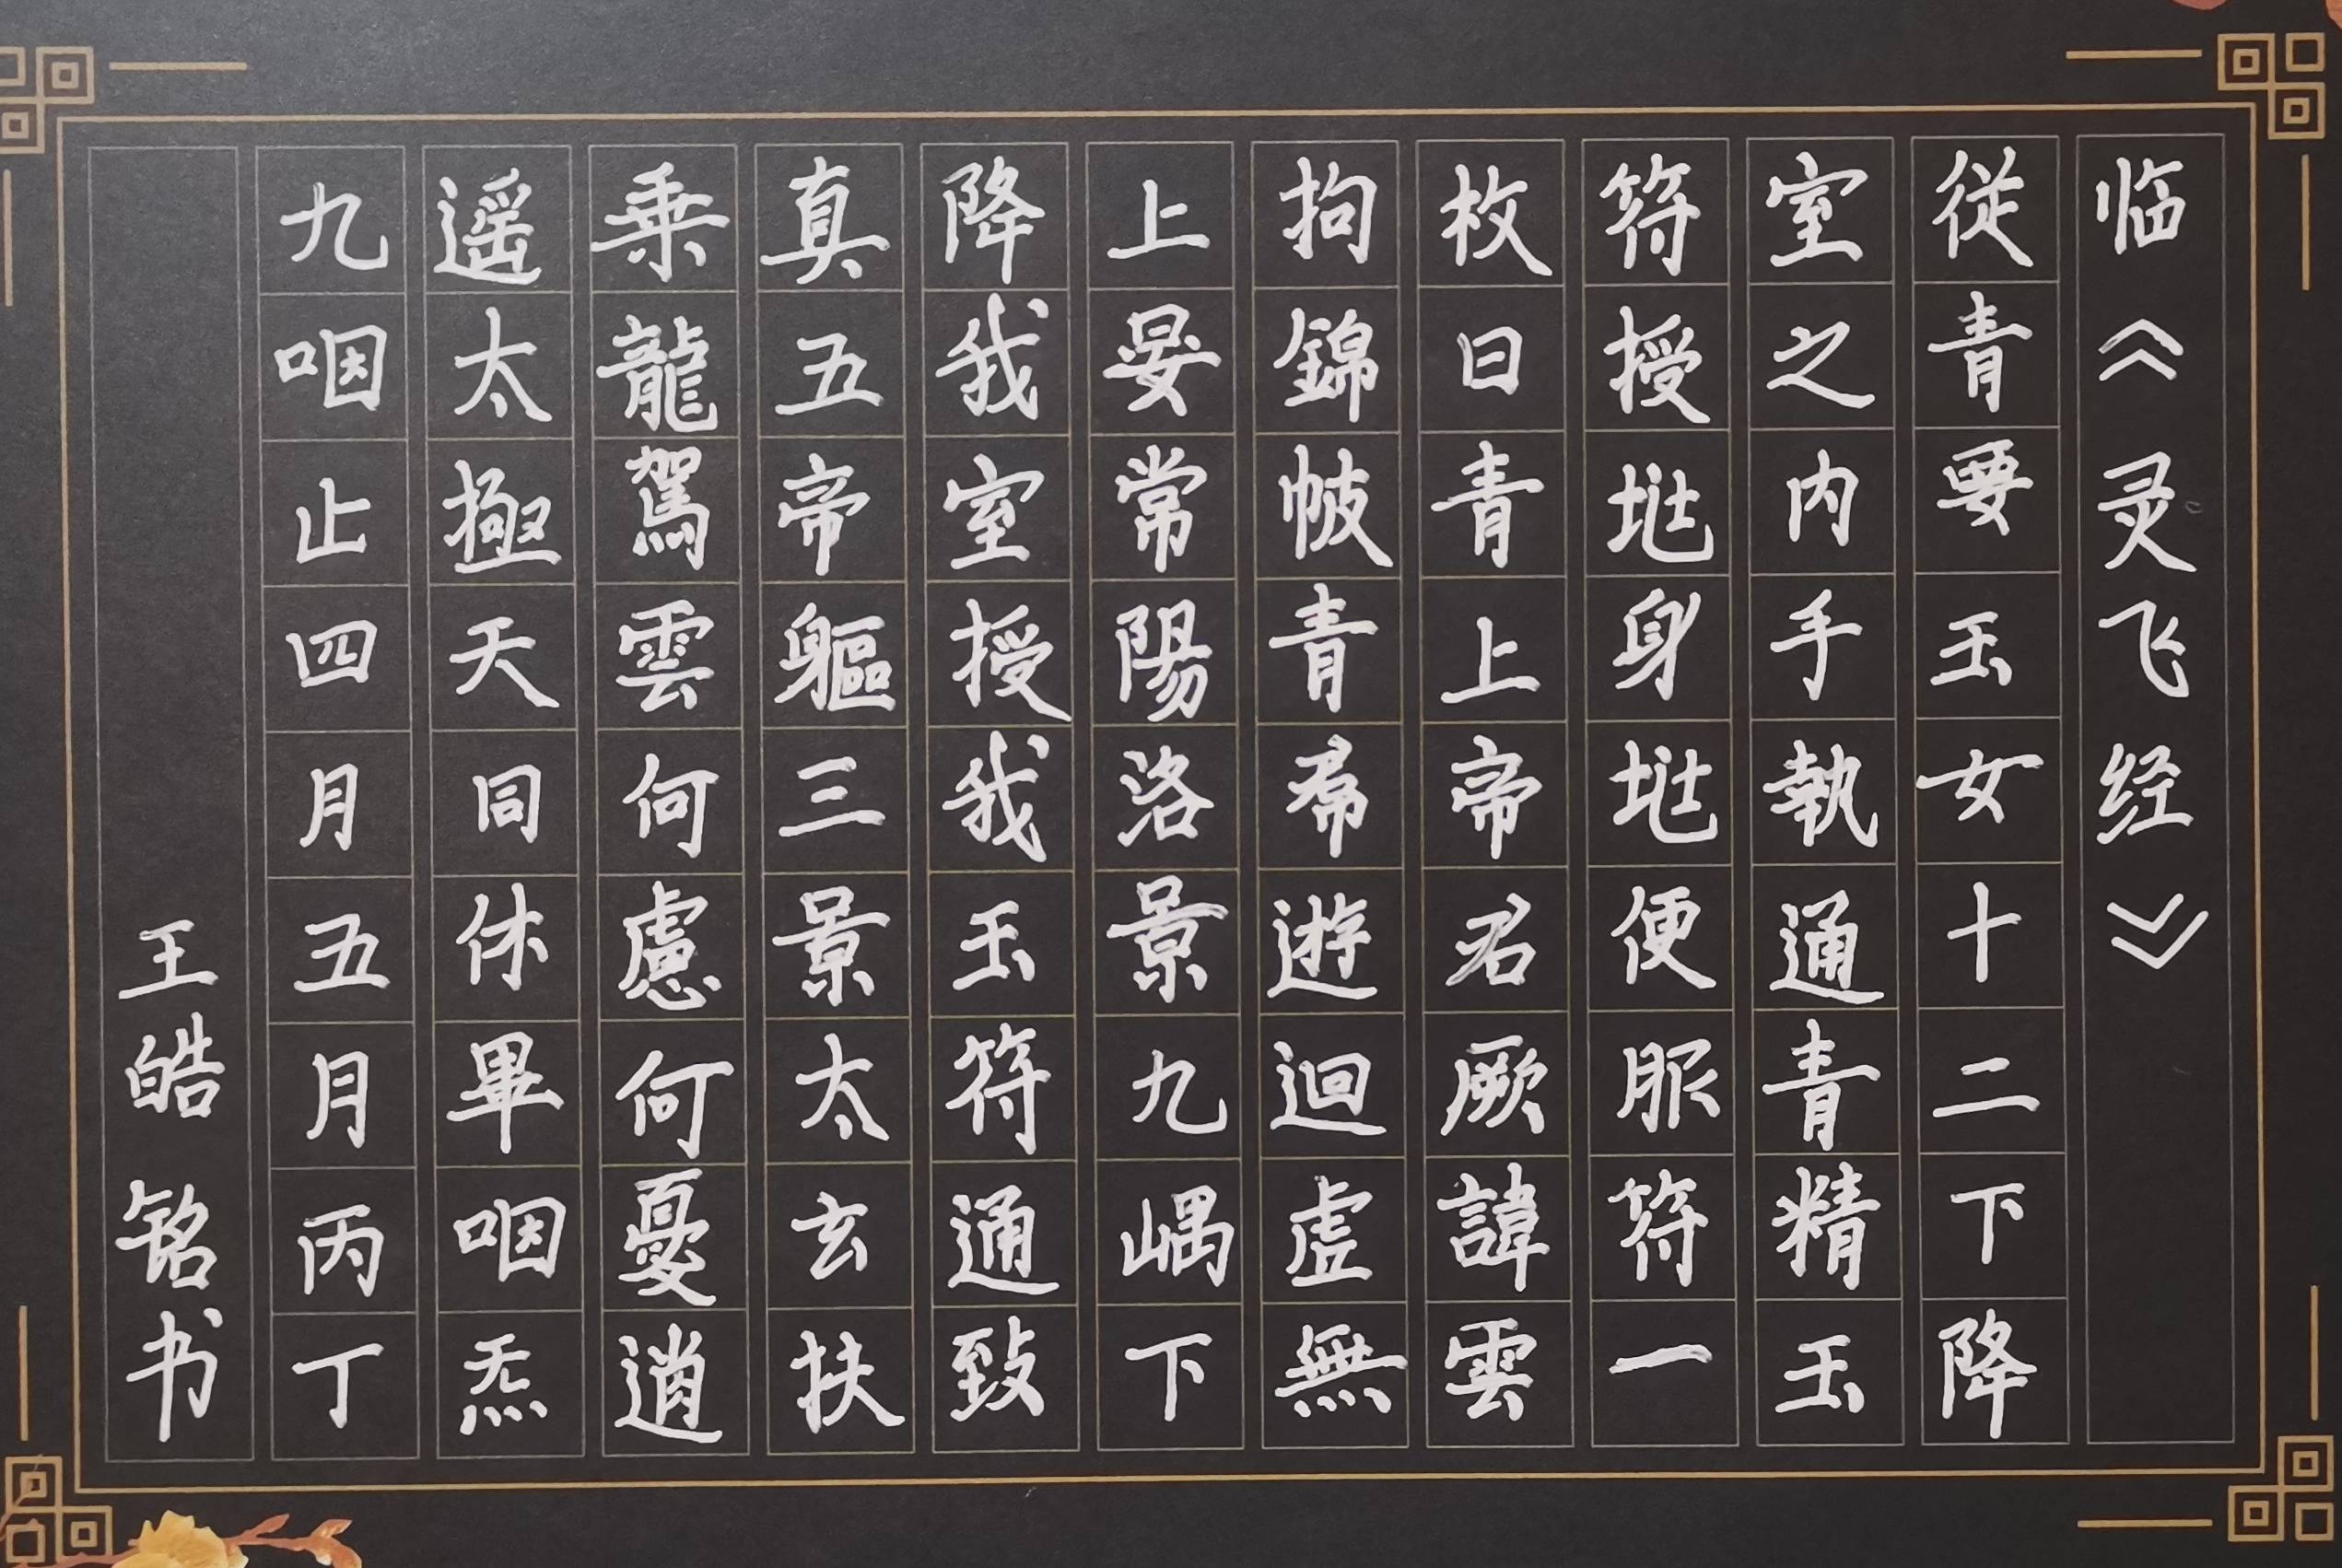 临《灵飞经》
從青要玉女十二下降
室之内手執通青精玉
符授㘴身㘴便服符一
枚曰青上帝君厥諱雲
拘錦帔青帬遊迴虚無
上晏常陽洛景九嵎下
降我室授我玉符通致
真五帝軀三景太玄扶
乗龍駕雲何慮何憂逍
遥太極天同休畢咽炁
九咽止四月五月丙丁
王皓铭书